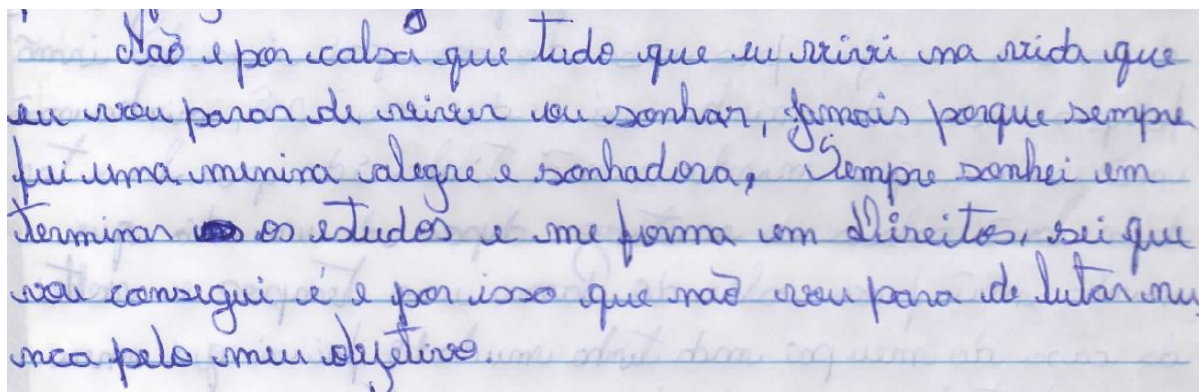 Não e por calsa que tudo que eu vivi na vida que
eu vou parar de viver ou sonhar, jamais porque sempre
fui uma menina alegre e sonhadora, Sempre sonhei em
terminar os estudos e me forma em Direitos, sei que
vou consegui é e por isso que não vou para de lutar nu
nca pelo meu objetivo.